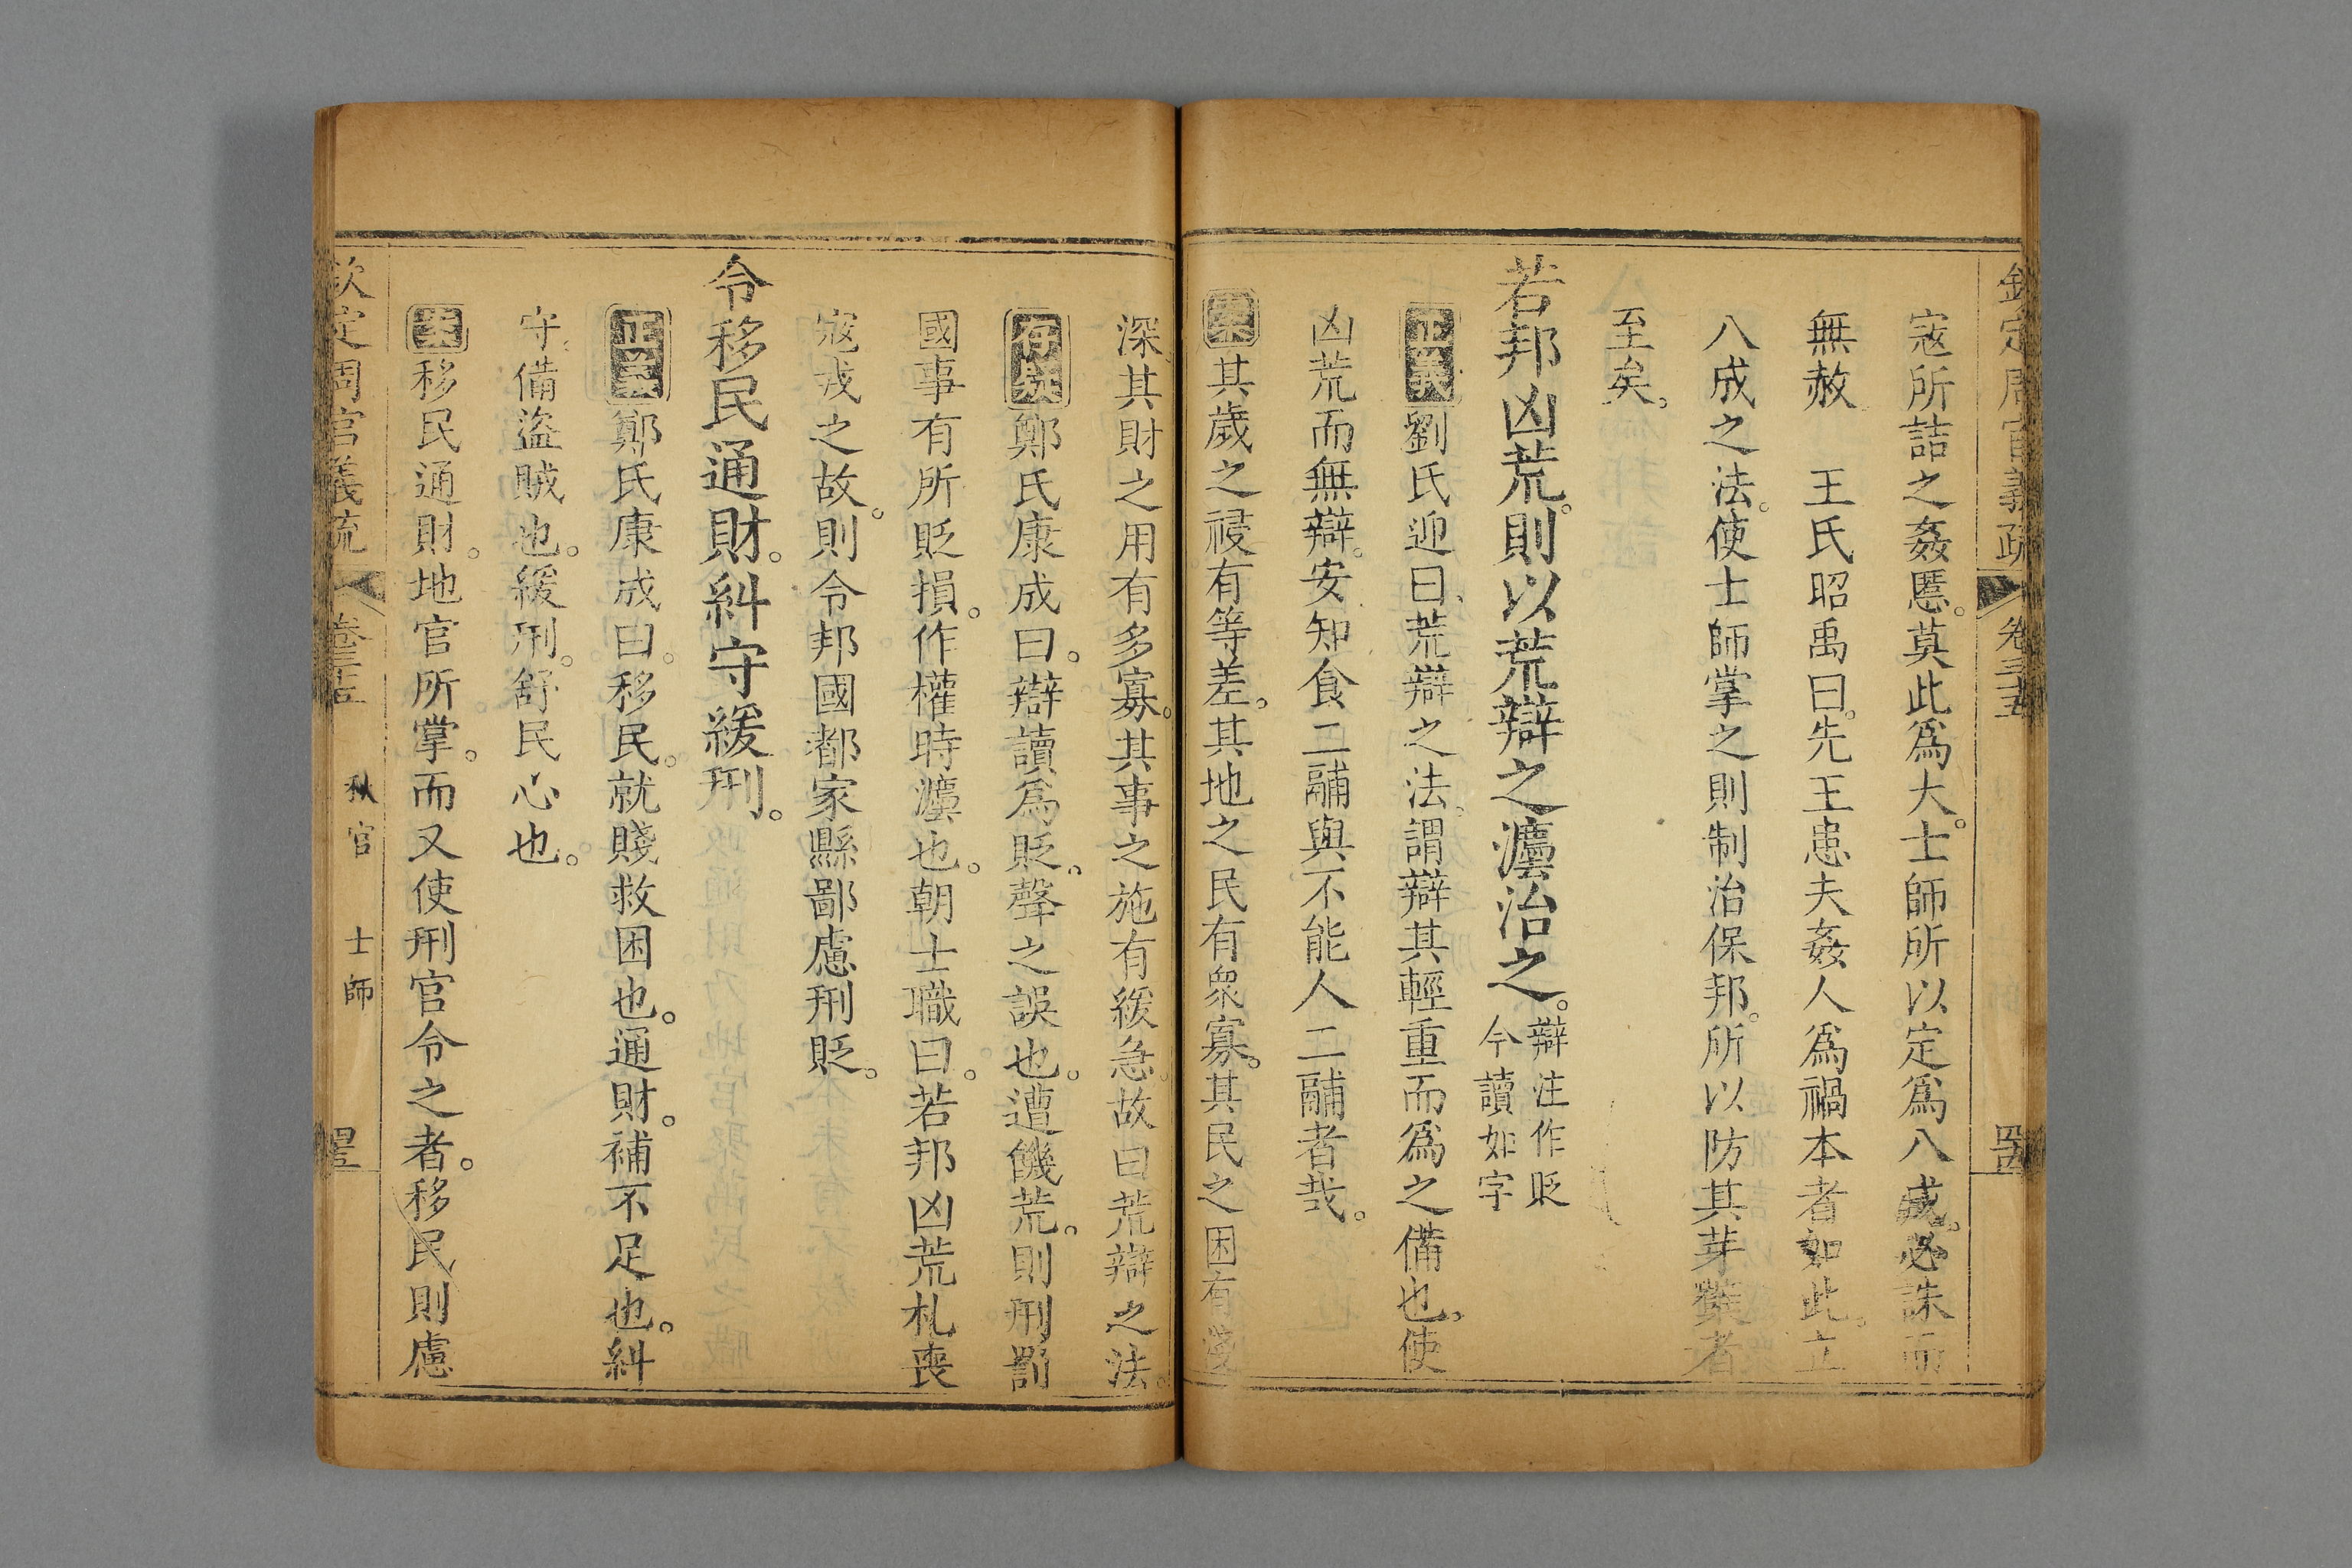 欽定周官義疏 卷三十五 四五
寇所詰之姦慝。莫此爲大。士師所以定爲八成。必誅而
無赦 王氏昭禹曰。先王患夫姦人爲禍本者如此。立
八成之法。使士師掌之則制治保邦。所以防其芽蘖者
至矣。
若邦凶荒。則以荒辯之灋治之。辯注作貶
今讀如字
正義劉氏迎曰。荒辯之法。謂辯其輕重而爲之備也。使
凶荒而無辯。安知食二鬴與不能人二鬴者哉。
案其歲之祲有等差。其地之民有衆寡。其民之困有淺
深。其財之用有多寡。其事之施有緩急。故曰荒辯之法。
存疑鄭氏康成曰。辯讀爲貶。聲之誤也。遭饑荒。則刑罰
國事有所貶損。作權時灋也。朝士職曰。若邦凶荒札喪
寇戎之故。則令邦國都家縣鄙慮刑貶。
令移民通財。糾守緩刑。
正義鄭氏康成曰。移民。就賤救困也。通財。補不足也。糾
守。備盜賊也。緩刑。舒民心也。
案移民通財。地官所掌。而又使刑官令之者。移民則慮
欽定周官義疏 卷三十五 秋官 士師